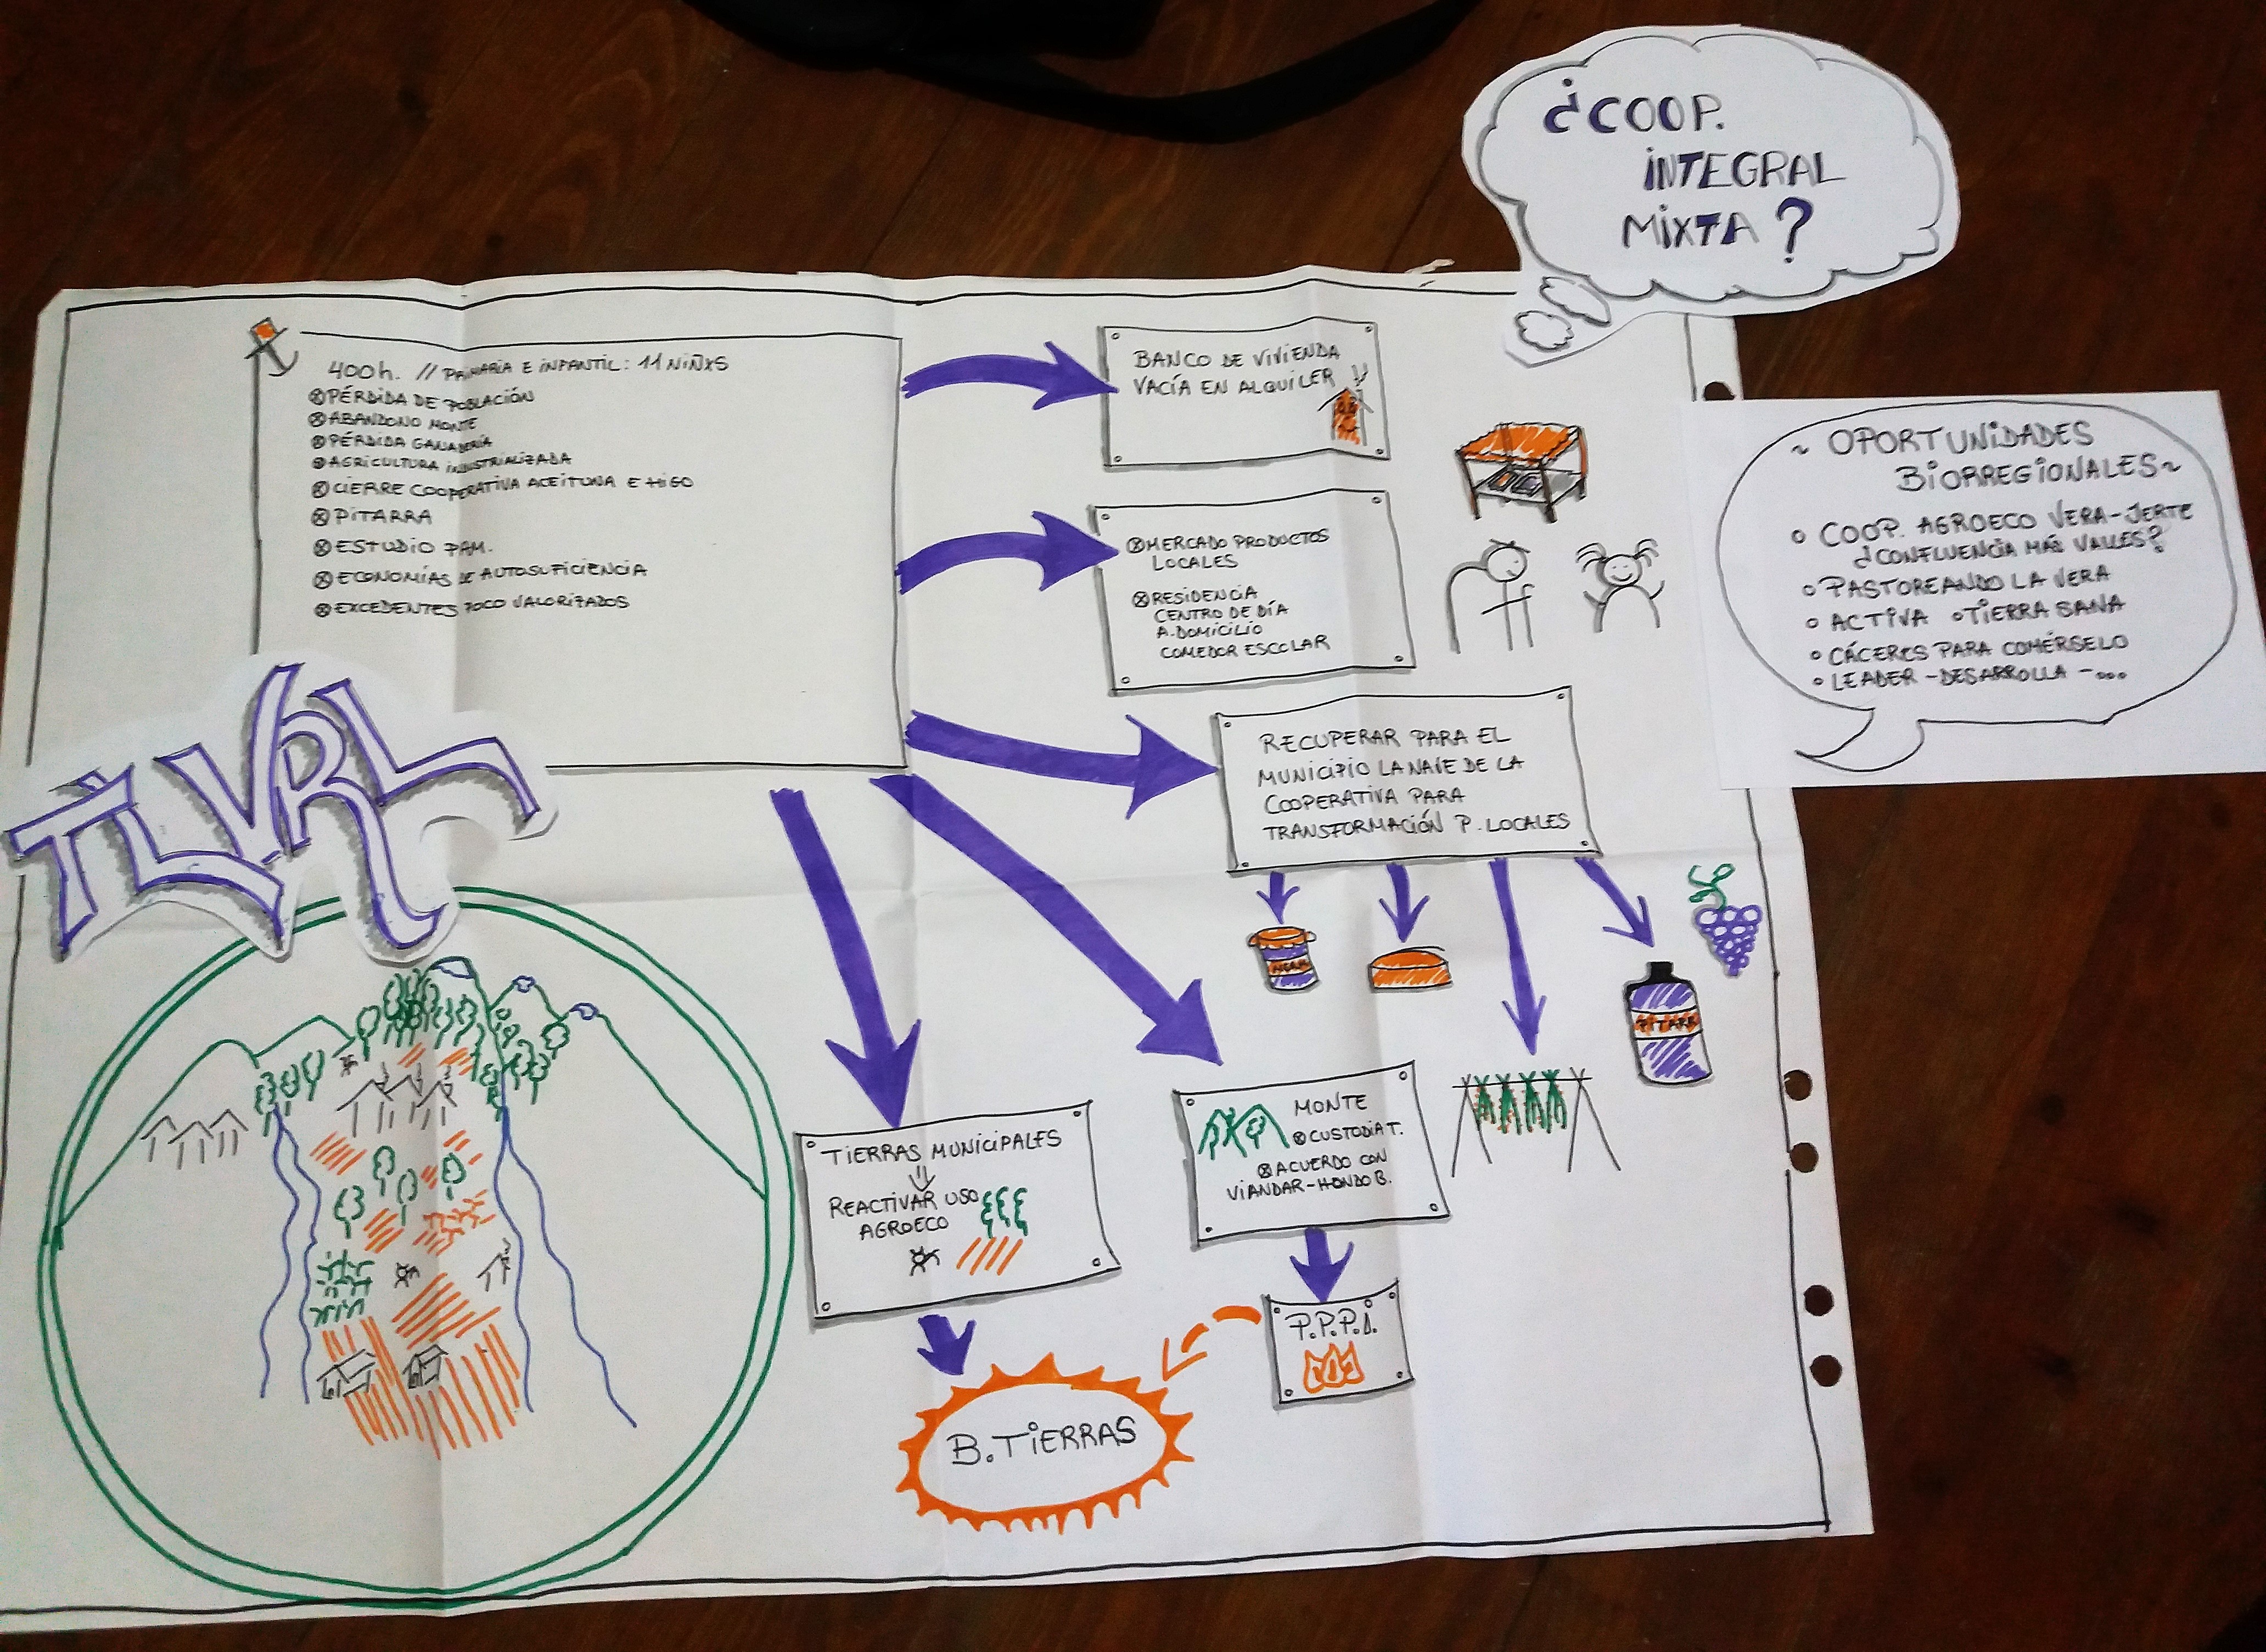 ¿COOP.
INTEGRAL
MIXTA?
400h. // PRIMARIA E INFANTIL: 11 NIÑXS
PÉRDIDA DE POBLACIÓN
ABANDONO MONTE
PÉRDIDA GANADERÍA
AGRICULTURA INDUSTRIALIZADA
CIERRE COOPERATIVA ACEITUNA E HIGO
PITARRA
ESTUDIO PAM.
ECONOMÍAS DE AUTOSUFICIENCIA
EXCEDENTES POCO VALORIZADOS
BANCO DE VIVIENDA
VACÍA EN ALQUILER
MERCADO PRODUCTOS
LOCALES
RESIDENCIA
CENTRO DE DÍA
A. DOMICILIO
COMEDOR ESCOLAR
~ OPORTUNIDADES
BIORREGIONALES ~
COOP. AGROECO VERA-JERTE
¿CONFLUENCIA MÁS VALLES?
PASTOREANDO LA VERA
ACTIVA ∘ TIERRA SANA
CÁCERES PARA COMÉRSELO
LEADER - DESARROLLA - ...
RECUPERAR PARA EL
MUNICIPIO LA NAVE DE LA
COOPERATIVA PARA
TRANSFORMACIÓN P. LOCALES
TLVRL
TIERRAS MUNICIPALES
REACTIVAR USO
AGROECO
MONTE
CUSTODIA T.
ACUERDO CON
VIANDAR-HONDO B.
P.P.P.I.
B. TIERRAS